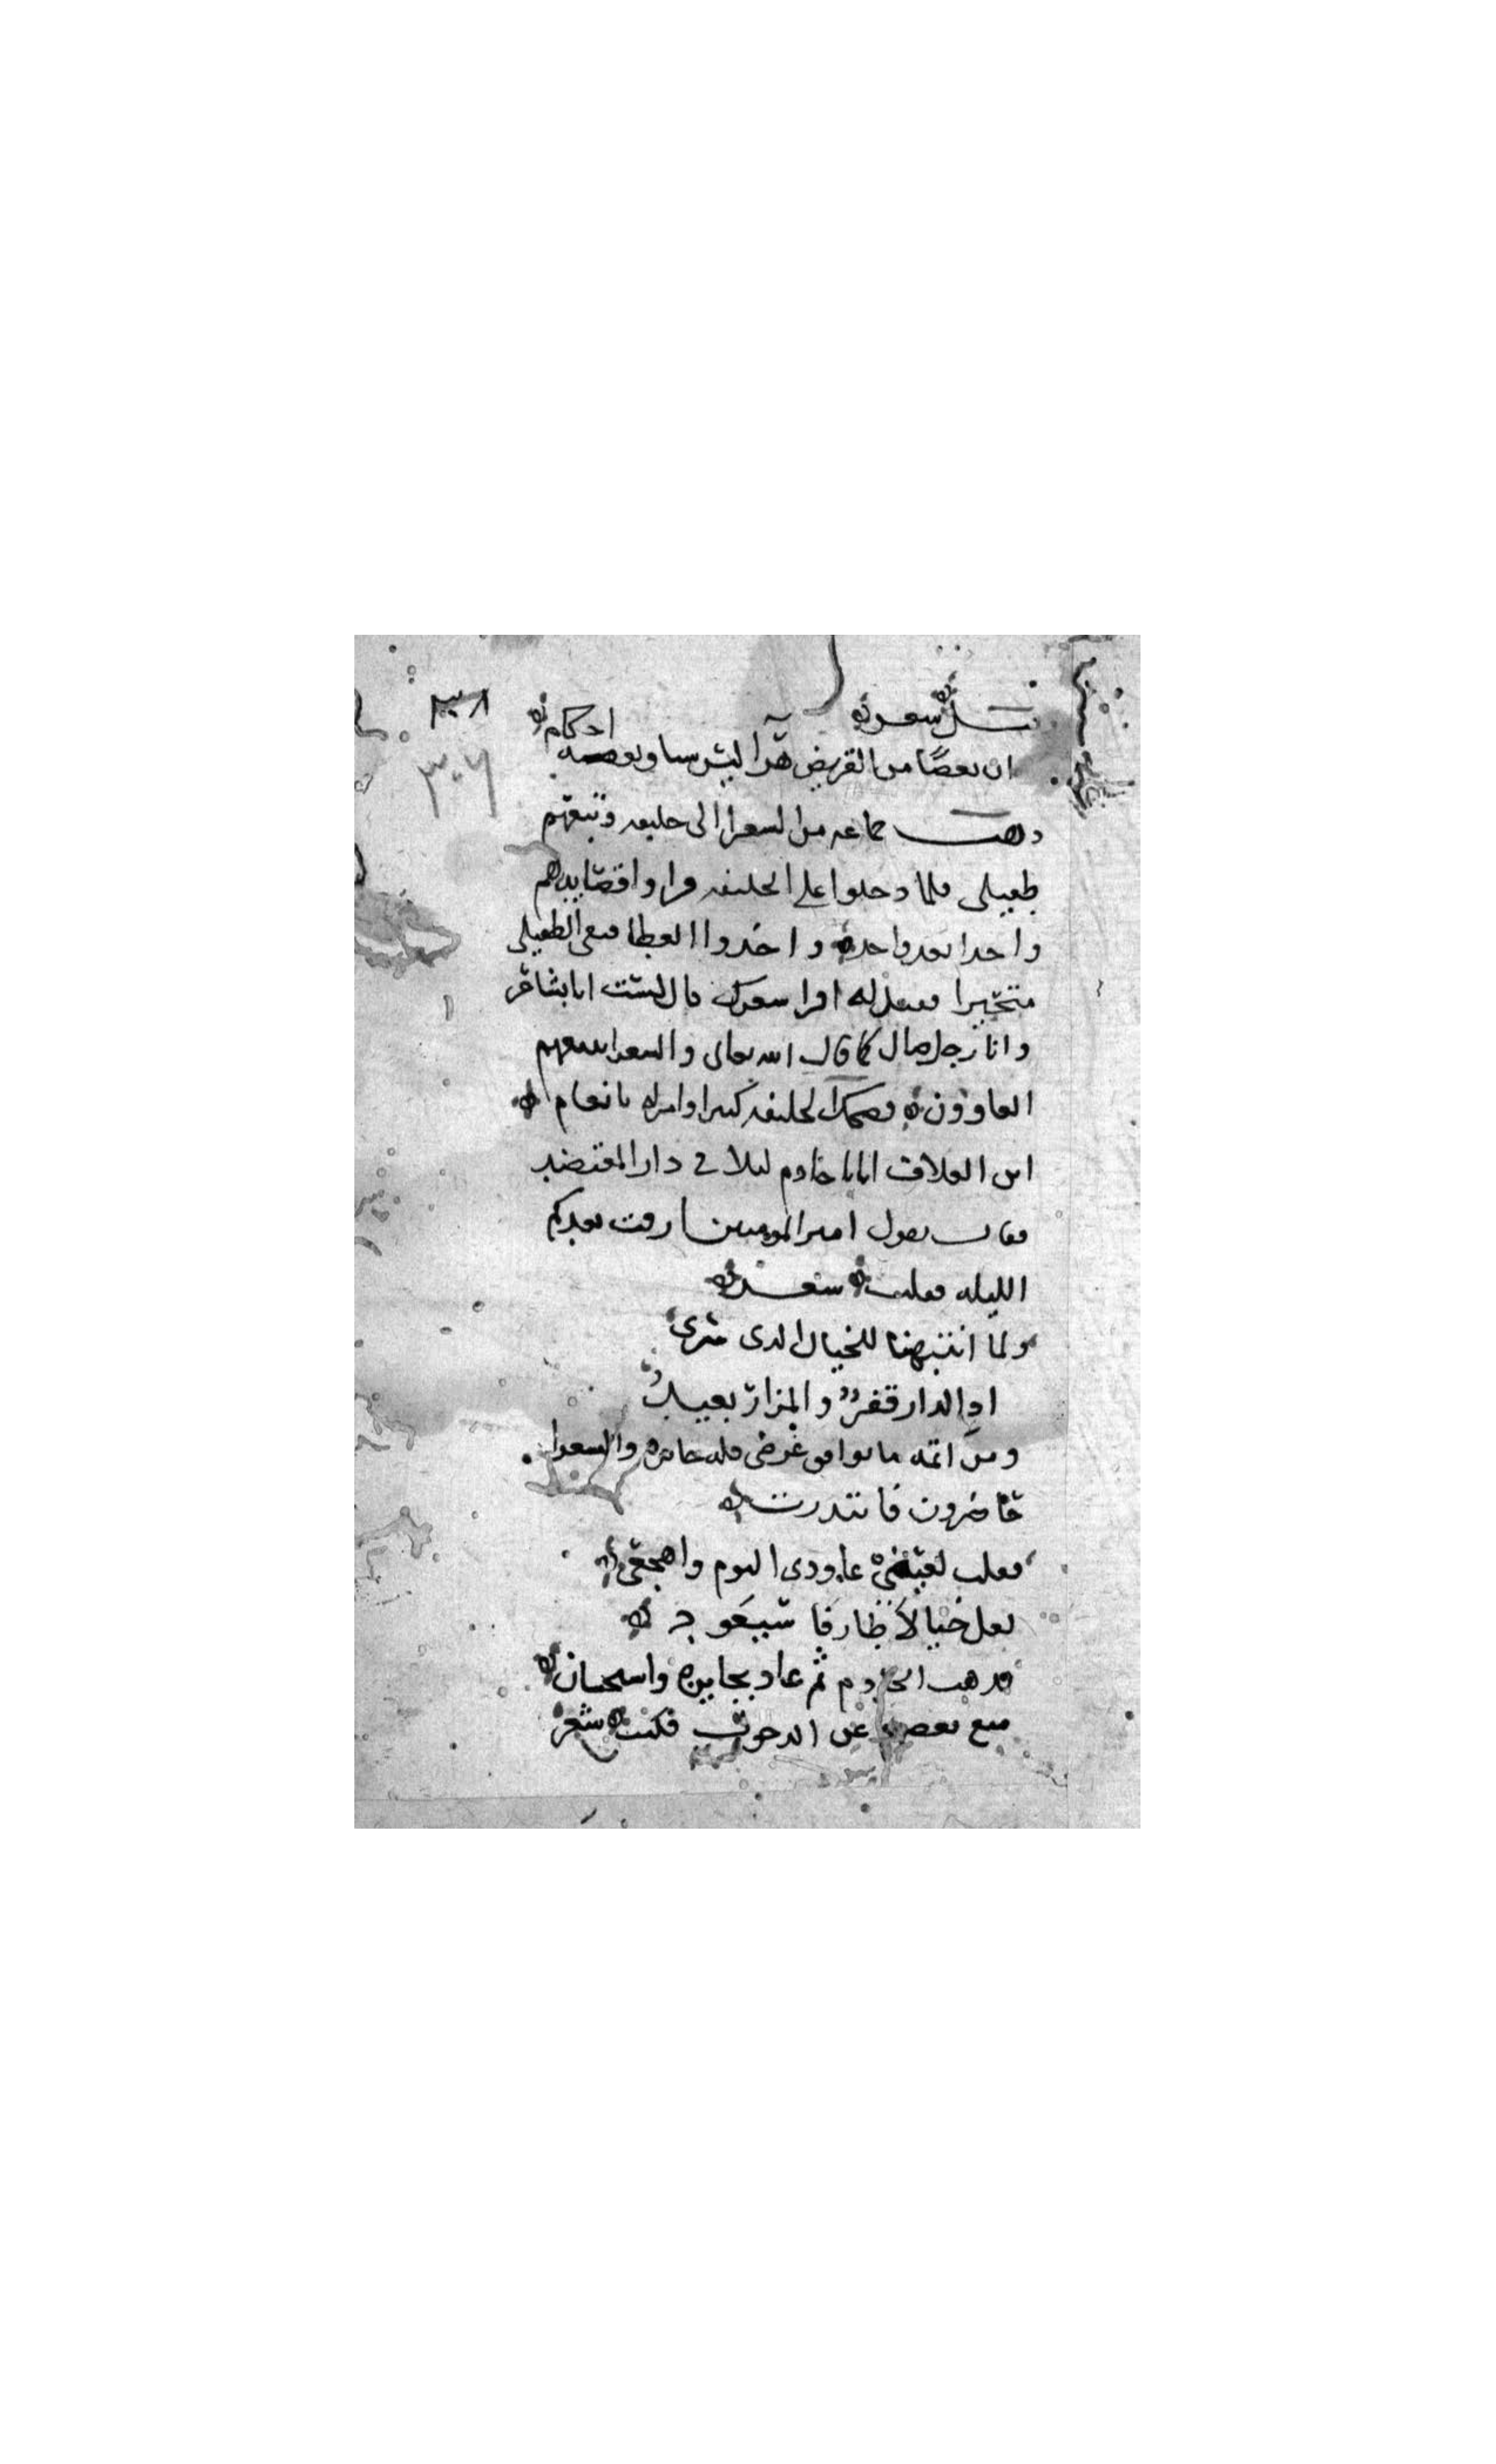 ٣٠٨
٣٠٦
شعر
ان بعضًا من القريض هذا ليس سيا وبعضه احكام
ذهب جماعه من الشعرا الى خليفه وتبعهم
طفيلى فلما دخلوا على الخليفه قراوا قصايدهم
واحدا بعد واحد واخذوا العطا فبقى الطفيلى
متحيرا فقيل له اقرا شعرك قال لست انا بشاعر
وانا رجل ضال كما قال الله تعالى والشعرا يتبعهم
الغاوون فضحك الخليفه كثيرا وامر له بانعام
ابن العلاف اتانا خادم ليلا فى دار المعتضد
فقال يقول امير المومنين ارقت بعدكم
الليله فقلت شعر
ولما انتبهنا للخيال الذى سرى
اذا الدار قفرٌ والمزار بعيدُ
ومن اتمه ما يوافق غرضى فله جايزه والشعرا
حاضرون فابتدرت
فقلت لعينى عاودى النوم واهجعى
لعل خيالا طارقا سيعود
فذهب الخادم ثم عاد بجايزه واستحسان
منع بعض عن الدخول فكتب شعر